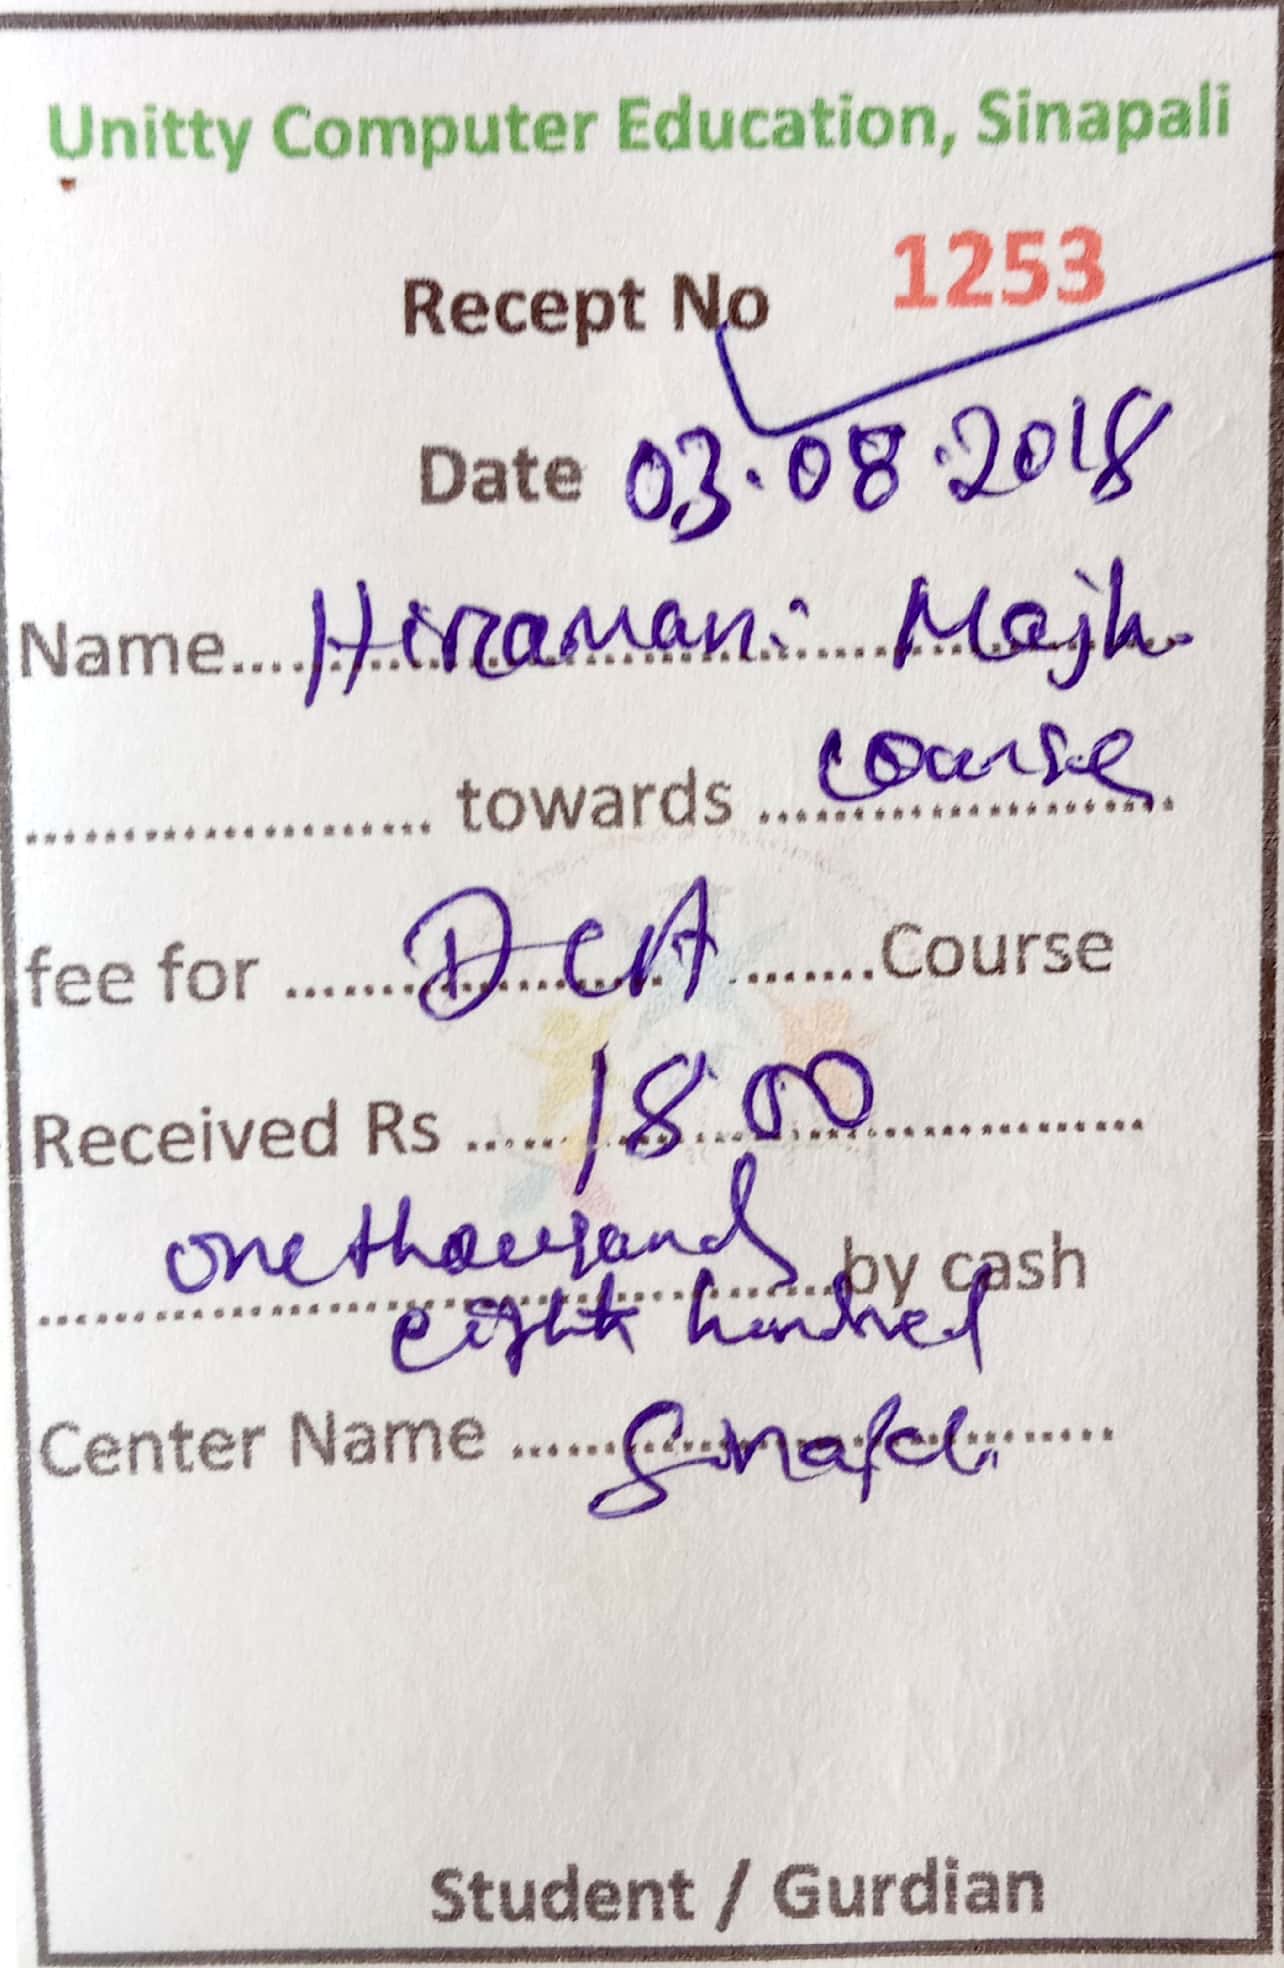 Unitty Computer Education, Sinapali
Recept No 1253
Date 03.08.2018
Name.... Hiramani Majhi
.................... towards course
fee for ...... DCA ....... Course
Received Rs ..... 1800 ...............
one thousand ........by cash
eight hundred
Center Name ...... Sinapali ......
Student / Gurdian